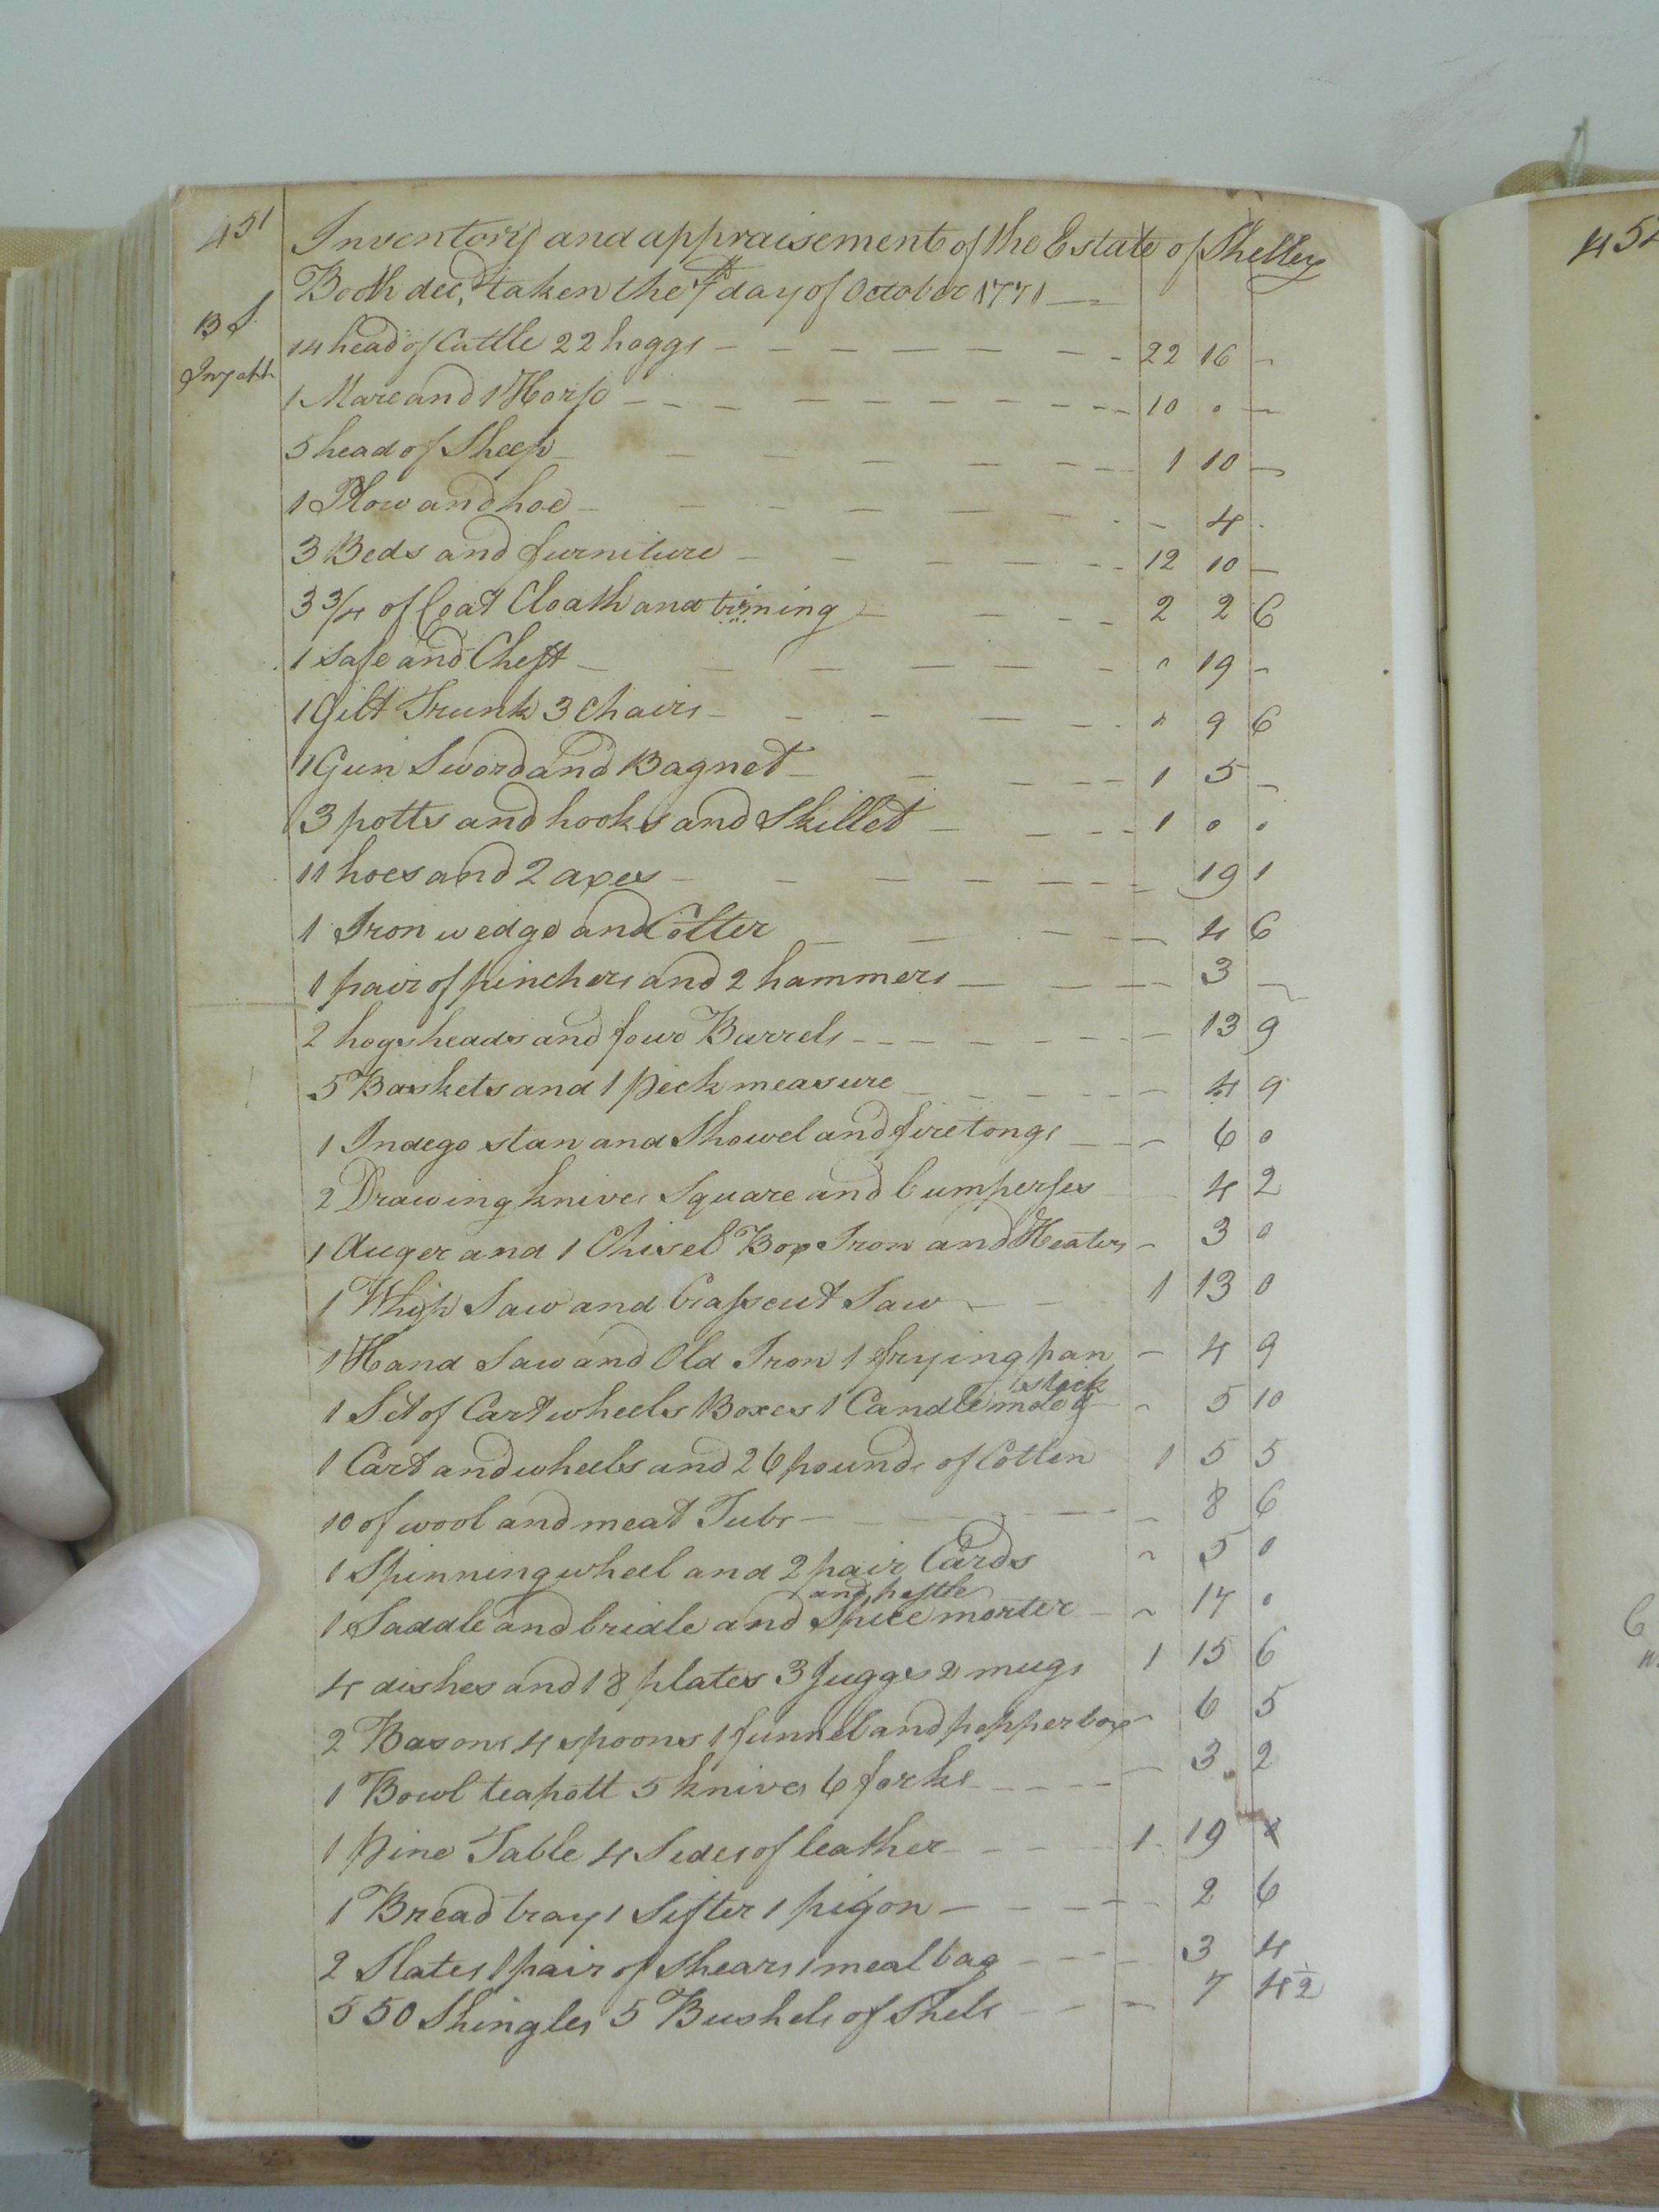 451
Inventory and appraisement of the Estate of Shelley
Booth dec'd, taken the 7th day of October 1771
BS
Inv 7 oct
14 head of Cattle 22 hoggs 22 16 -
1 Mare and 1 Horse 10 0 -
5 head of Sheep 1 10 -
1 Plow and hoe - 4 -
3 Beds and furniture 12 10 -
3 3/4 of Coat Cloath and triming 2 2 6
1 Safe and Chest 0 19 -
1 Gilt Trunk 3 Chairs 0 9 6
1 Gun Sword and Bagnet 1 5 -
3 potts and hooks and Skillet 1 0 0
11 hoes and 2 axes - 19 1
1 Iron wedge and Colter - 4 6
1 pair of pinchers and 2 hammers - 3 -
2 hogsheads and four Barrels - 13 9
5 Baskets and 1 peck measure - 4 9
1 Indego stan and Showel and fire tongs - 6 0
2 Drawing knives Square and Cumpesses 4 2
1 Auger and 1 Chisel Box Iron and Heaters - 3 0
1 Whip Saw and Crasscut Saw 1 13 0
1 Hand Saw and Old Iron 1 frying pan - 4 9
1 Set of Cart wheels Boxes 1 Candle mold & stick - 5 10
1 Cart and wheels and 26 pounds of Cotten 1 5 5
10 of wool and meat Tubs - 8 6
1 Spinning wheel and 2 pair Cards - 5 0
1 Saddle and bridle and Spice morter and pestle - 17 0
4 dishes and 18 plates 3 Juggs 2 mugs 1 15 6
2 Basons 4 spoons 1 funnel and pepper box - 6 5
1 Bowl teapott 5 knives 6 forks - 3 2
1 pine Table 4 Sides of leather 1 19
1 Bread tray 1 Sifter 1 pigon - 2 6
2 Slates 1 pair of Shears 1 meal bag - 3 4
550 Shingles 5 Bushels of Shels - 7 4 1/2